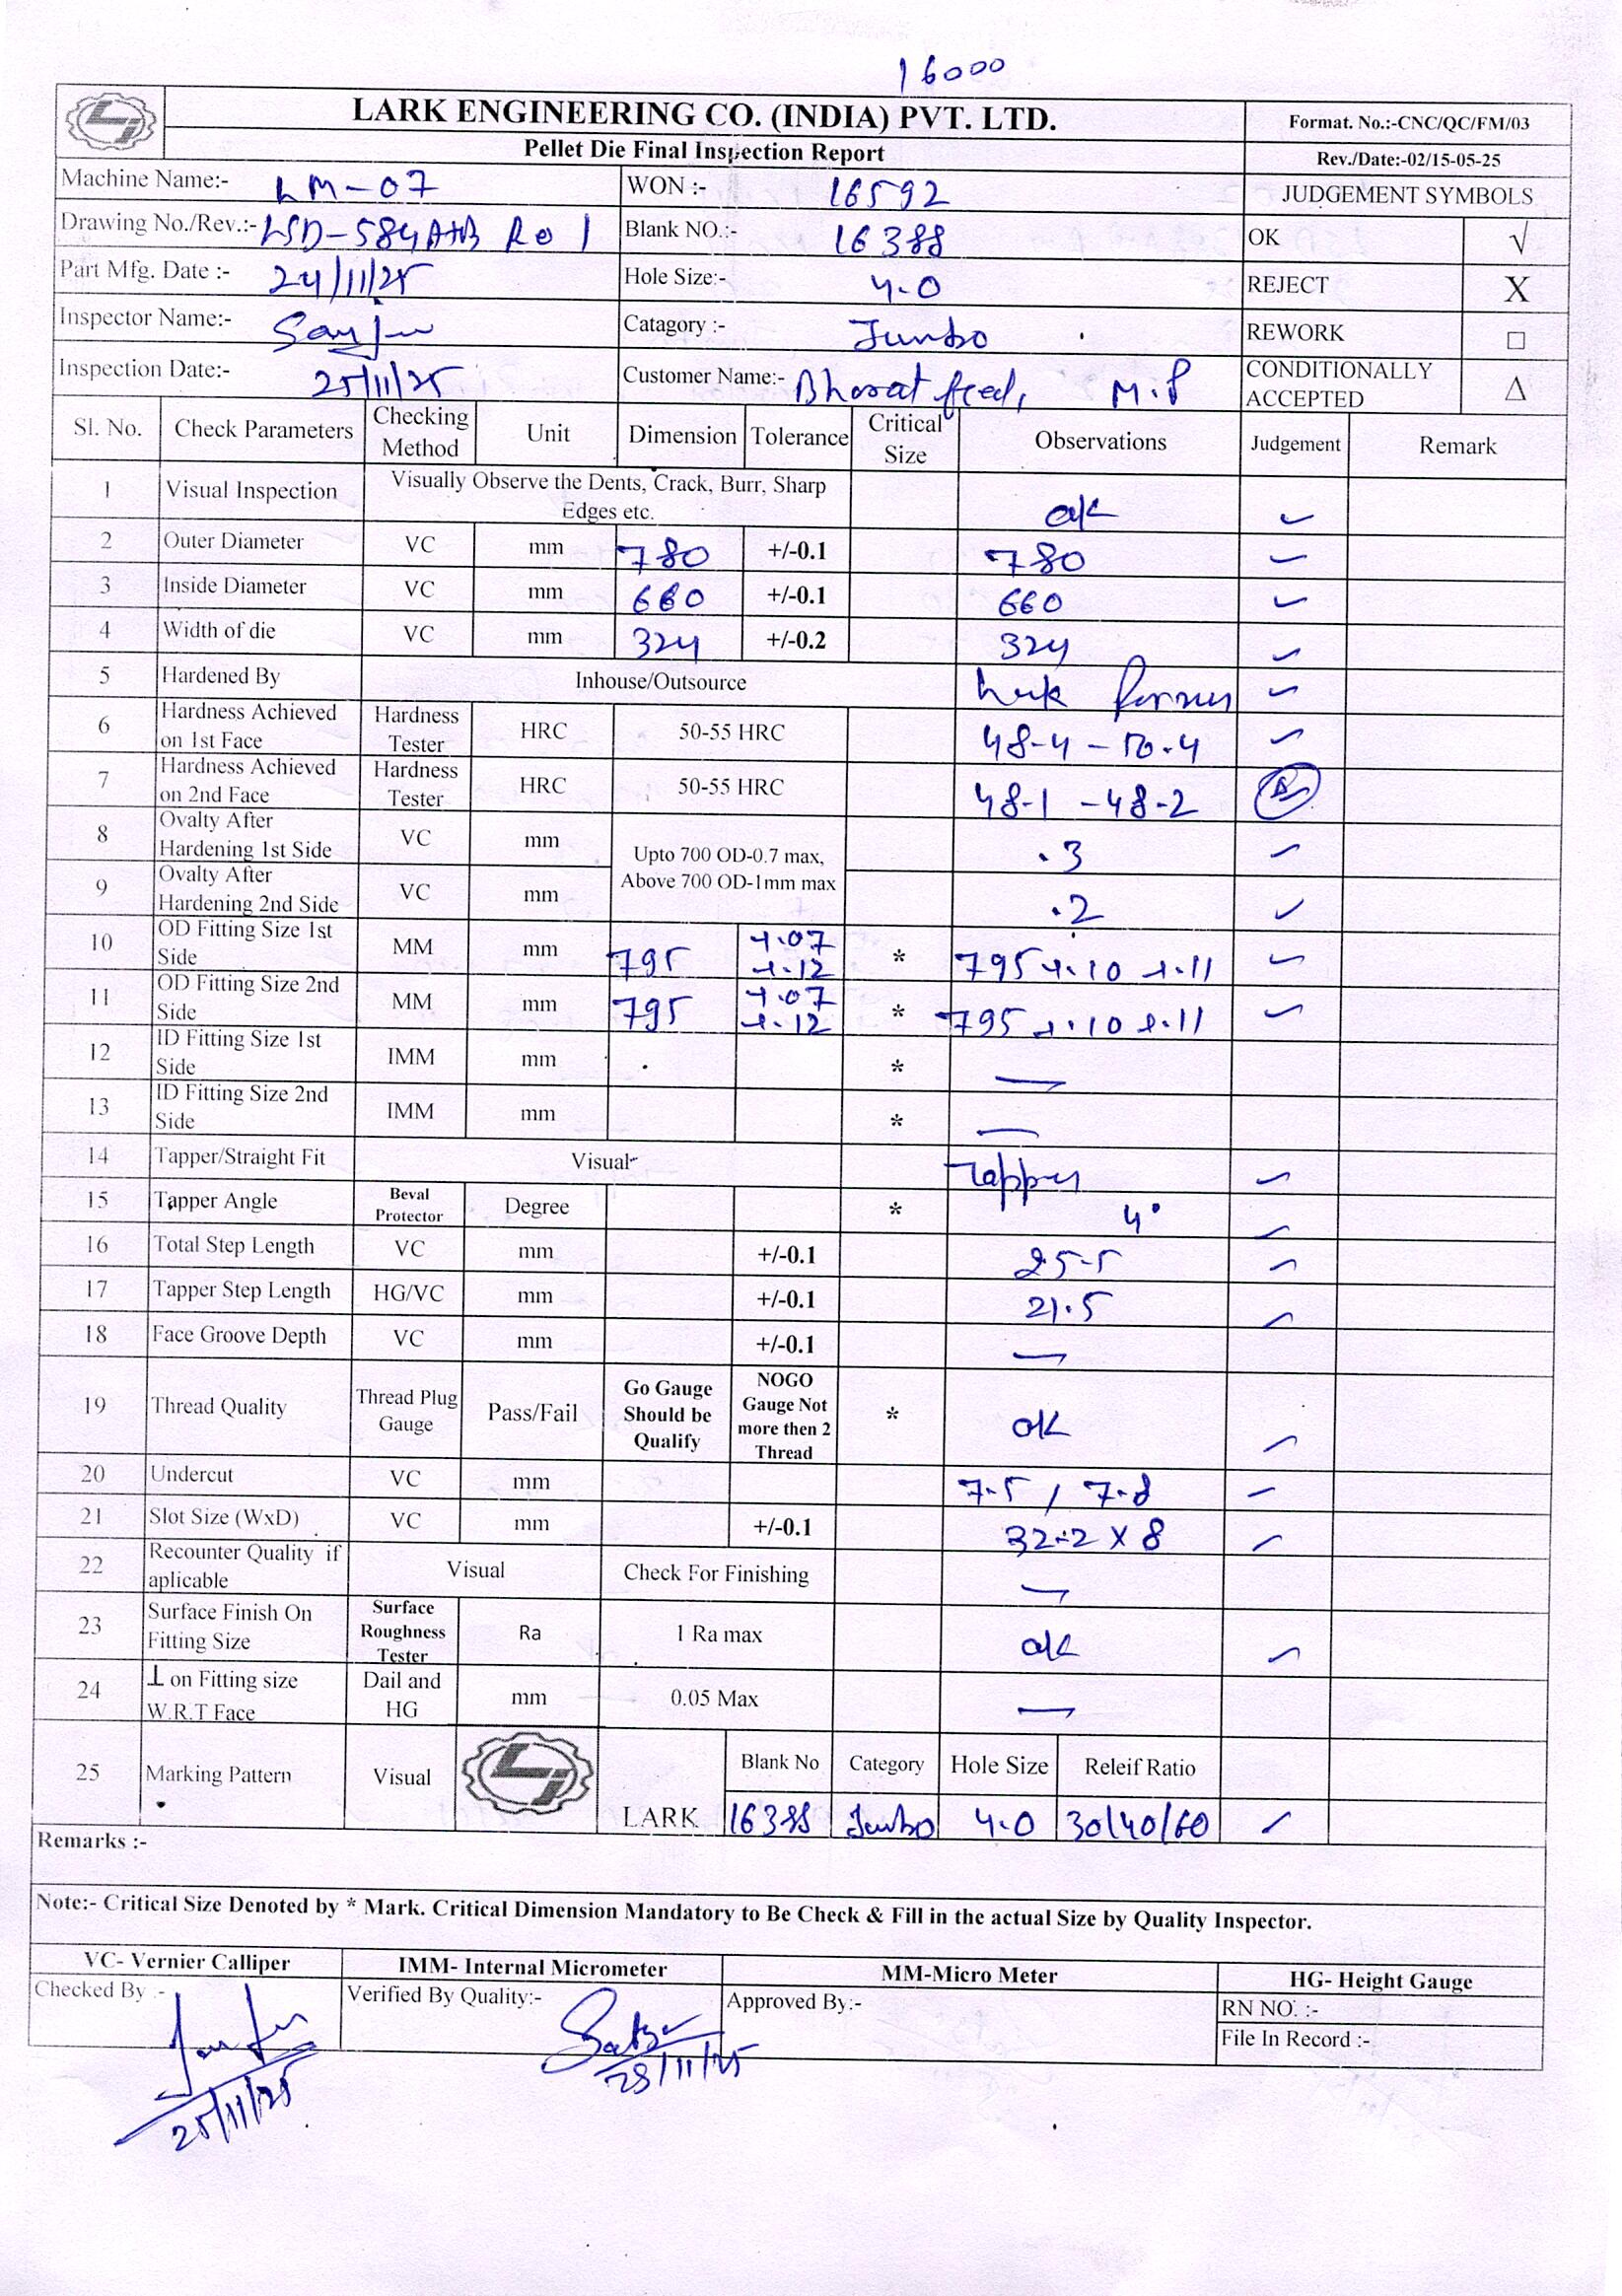 16000
LARK ENGINEERING CO. (INDIA) PVT. LTD.
Format. No.:-CNC/QC/FM/03
Pellet Die Final Inspection Report
Rev./Date:-02/15-05-25
Machine Name:- LM-07 WON :- 16592 JUDGEMENT SYMBOLS
Drawing No./Rev.:- LSD-584A+B R01 Blank NO.:- 16388 OK √
Part Mfg. Date :- 24/11/25 Hole Size:- 4.0 REJECT X
Inspector Name:- Sanju Catagory :- Jumbo REWORK □
Inspection Date:- 25/11/25 Customer Name:- Bharat feed, M.P CONDITIONALLY ACCEPTED Δ
Sl. No. Check Parameters Checking Method Unit Dimension Tolerance Critical Size Observations Judgement Remark
1 Visual Inspection Visually Observe the Dents, Crack, Burr, Sharp Edges etc. ok ✓
2 Outer Diameter VC mm 780 +/-0.1 780 ✓
3 Inside Diameter VC mm 660 +/-0.1 660 ✓
4 Width of die VC mm 324 +/-0.2 324 ✓
5 Hardened By Inhouse/Outsource ✓
6 Hardness Achieved on 1st Face Hardness Tester HRC 50-55 HRC 48-4 - 50.4 ✓
7 Hardness Achieved on 2nd Face Hardness Tester HRC 50-55 HRC 48-1 - 48-2
8 Ovalty After Hardening 1st Side VC mm Upto 700 OD-0.7 max, Above 700 OD-1mm max .3 ✓
9 Ovalty After Hardening 2nd Side VC mm .2 ✓
10 OD Fitting Size 1st Side MM mm 795 +.07 +.12 * 795 +.10 +.11 ✓
11 OD Fitting Size 2nd Side MM mm 795 +.07 +.12 * 795 +.10 +.11 ✓
12 ID Fitting Size 1st Side IMM mm * —
13 ID Fitting Size 2nd Side IMM mm * —
14 Tapper/Straight Fit Visual Tapper ✓
15 Tapper Angle Beval Protector Degree * 4° ✓
16 Total Step Length VC mm +/-0.1 25-5 ✓
17 Tapper Step Length HG/VC mm +/-0.1 21.5 ✓
18 Face Groove Depth VC mm +/-0.1 —
19 Thread Quality Thread Plug Gauge Pass/Fail Go Gauge Should be Qualify NOGO Gauge Not more then 2 Thread * ok ✓
20 Undercut VC mm 7.5 / 7.8 ✓
21 Slot Size (WxD) VC mm +/-0.1 32.2 X 8 ✓
22 Recounter Quality if aplicable Visual Check For Finishing —
23 Surface Finish On Fitting Size Surface Roughness Tester Ra 1 Ra max ok ✓
24 ⊥ on Fitting size W.R.T Face Dail and HG mm 0.05 Max —
25 Marking Pattern Visual LARK Blank No Category Hole Size Releif Ratio
16388 Jumbo 4.0 30/40/60 ✓
Remarks :-
Note:- Critical Size Denoted by * Mark. Critical Dimension Mandatory to Be Check & Fill in the actual Size by Quality Inspector.
VC- Vernier Calliper IMM- Internal Micrometer MM-Micro Meter HG- Height Gauge
Checked By :- Verified By Quality:- Approved By:- RN NO. :-
File In Record :-
25/11/25 28/11/25